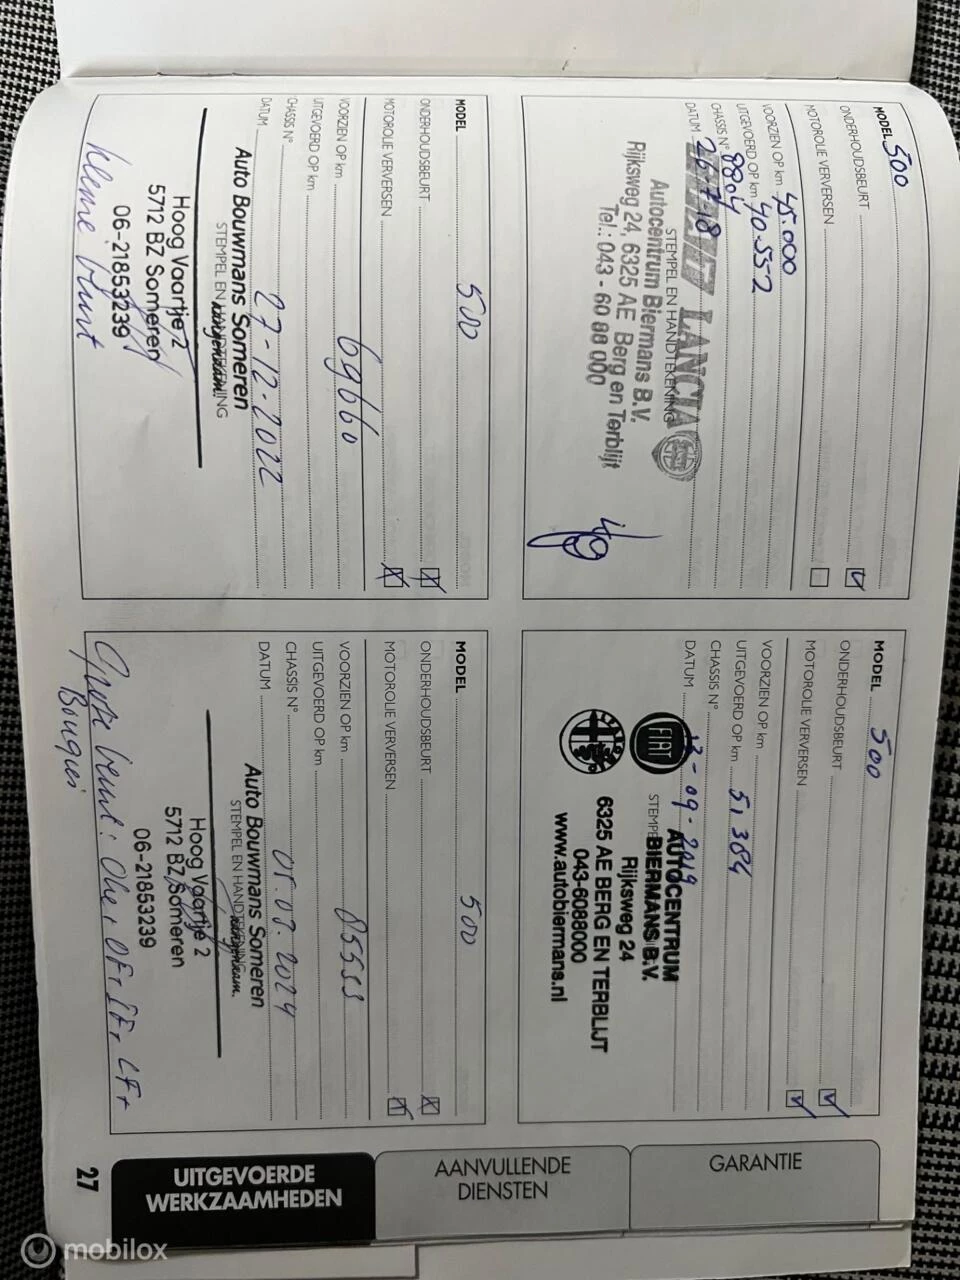 MODEL 500
ONDERHOUDSBEURT
MOTOROLIE VERVERSEN
VOORZIEN OP km 45.000
UITGEVOERD OP km 40.552
CHASSIS N° 8804
DATUM 26 7 18
STEMPEL EN HANDTEKENING
LANCIA
Autocentrum Biermans B.V.
Rijksweg 24, 6325 AE Berg en Terblijt
Tel.: 043 - 60 88 000
MODEL 500
ONDERHOUDSBEURT
MOTOROLIE VERVERSEN
VOORZIEN OP km
UITGEVOERD OP km 51384
CHASSIS N°
DATUM 13-09-2019
FIAT
AUTOCENTRUM
BIERMANS B.V.
Rijksweg 24
6325 AE BERG EN TERBLIJT
043-6088000
www.autobiermans.nl
MODEL 500
ONDERHOUDSBEURT
MOTOROLIE VERVERSEN
VOORZIEN OP km 69660
UITGEVOERD OP km
CHASSIS N°
DATUM 27-12-2022
Auto Bouwmans Someren
STEMPEL EN HANDTEKENING
Hoog Vaartje 2
5712 BZ Someren
06-21853239
kleine beurt
MODEL 500
ONDERHOUDSBEURT
MOTOROLIE VERVERSEN
VOORZIEN OP km 85553
UITGEVOERD OP km
CHASSIS N°
DATUM 05.07.2024
Auto Bouwmans Someren
STEMPEL EN HANDTEKENING
Hoog Vaartje 2
5712 BZ Someren
06-21853239
Grote beurt: Olie + OF + IF + LF +
Bougies
27
UITGEVOERDE
WERKZAAMHEDEN
AANVULLENDE
DIENSTEN
GARANTIE
mobilox